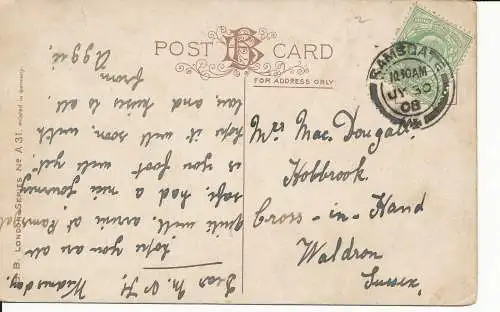 POST CARD
B
FOR ADDRESS ONLY
RAMSGATE
10.30 AM
JY 30
08
B. B. LONDON SERIES No A 31. Printed in Germany.
Mrs Mac Dougall,
Holbrook
Cross-in-Hand
Waldron
Sussex.
Wednesday.
Dear M.
hope you are all
quite well, arrived at Rams
safe, had a nice journey
is you foot well yet.
hope it will soon, with
love and kisses to all.
from
Aggie.